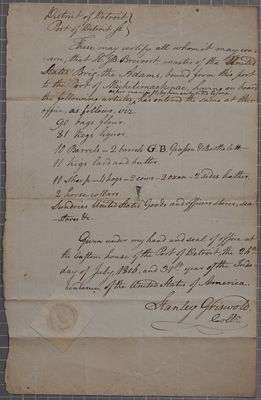 District of Detroit
Port of Detroit
These may certify all whom it may con-
cern, that H. B. Brevoort, master of the United
States Brig, the Adams, bound from this port
to the Port of Michilimackinac, having on board
the following articles, has entered the same at this
office, as follows, viz.
90 bags flour.
81 kegs liquor.
10 Barrels — 2 barrels G. B.
11 kegs lard and butter.
11 Sheep — 4 hogs — 2 cows — 2 oxen — 2 sides leather.
2 horse collars.
Sundries United States Goods and officers stores, sea-
stores &c.
Given under my hand and seal of office at
the Custom house of the Port of Detroit, the 26th
day of July, 1806, and 31st year of the Inde-
pendence of the United States of America.
Stanley Griswold.
Collr.